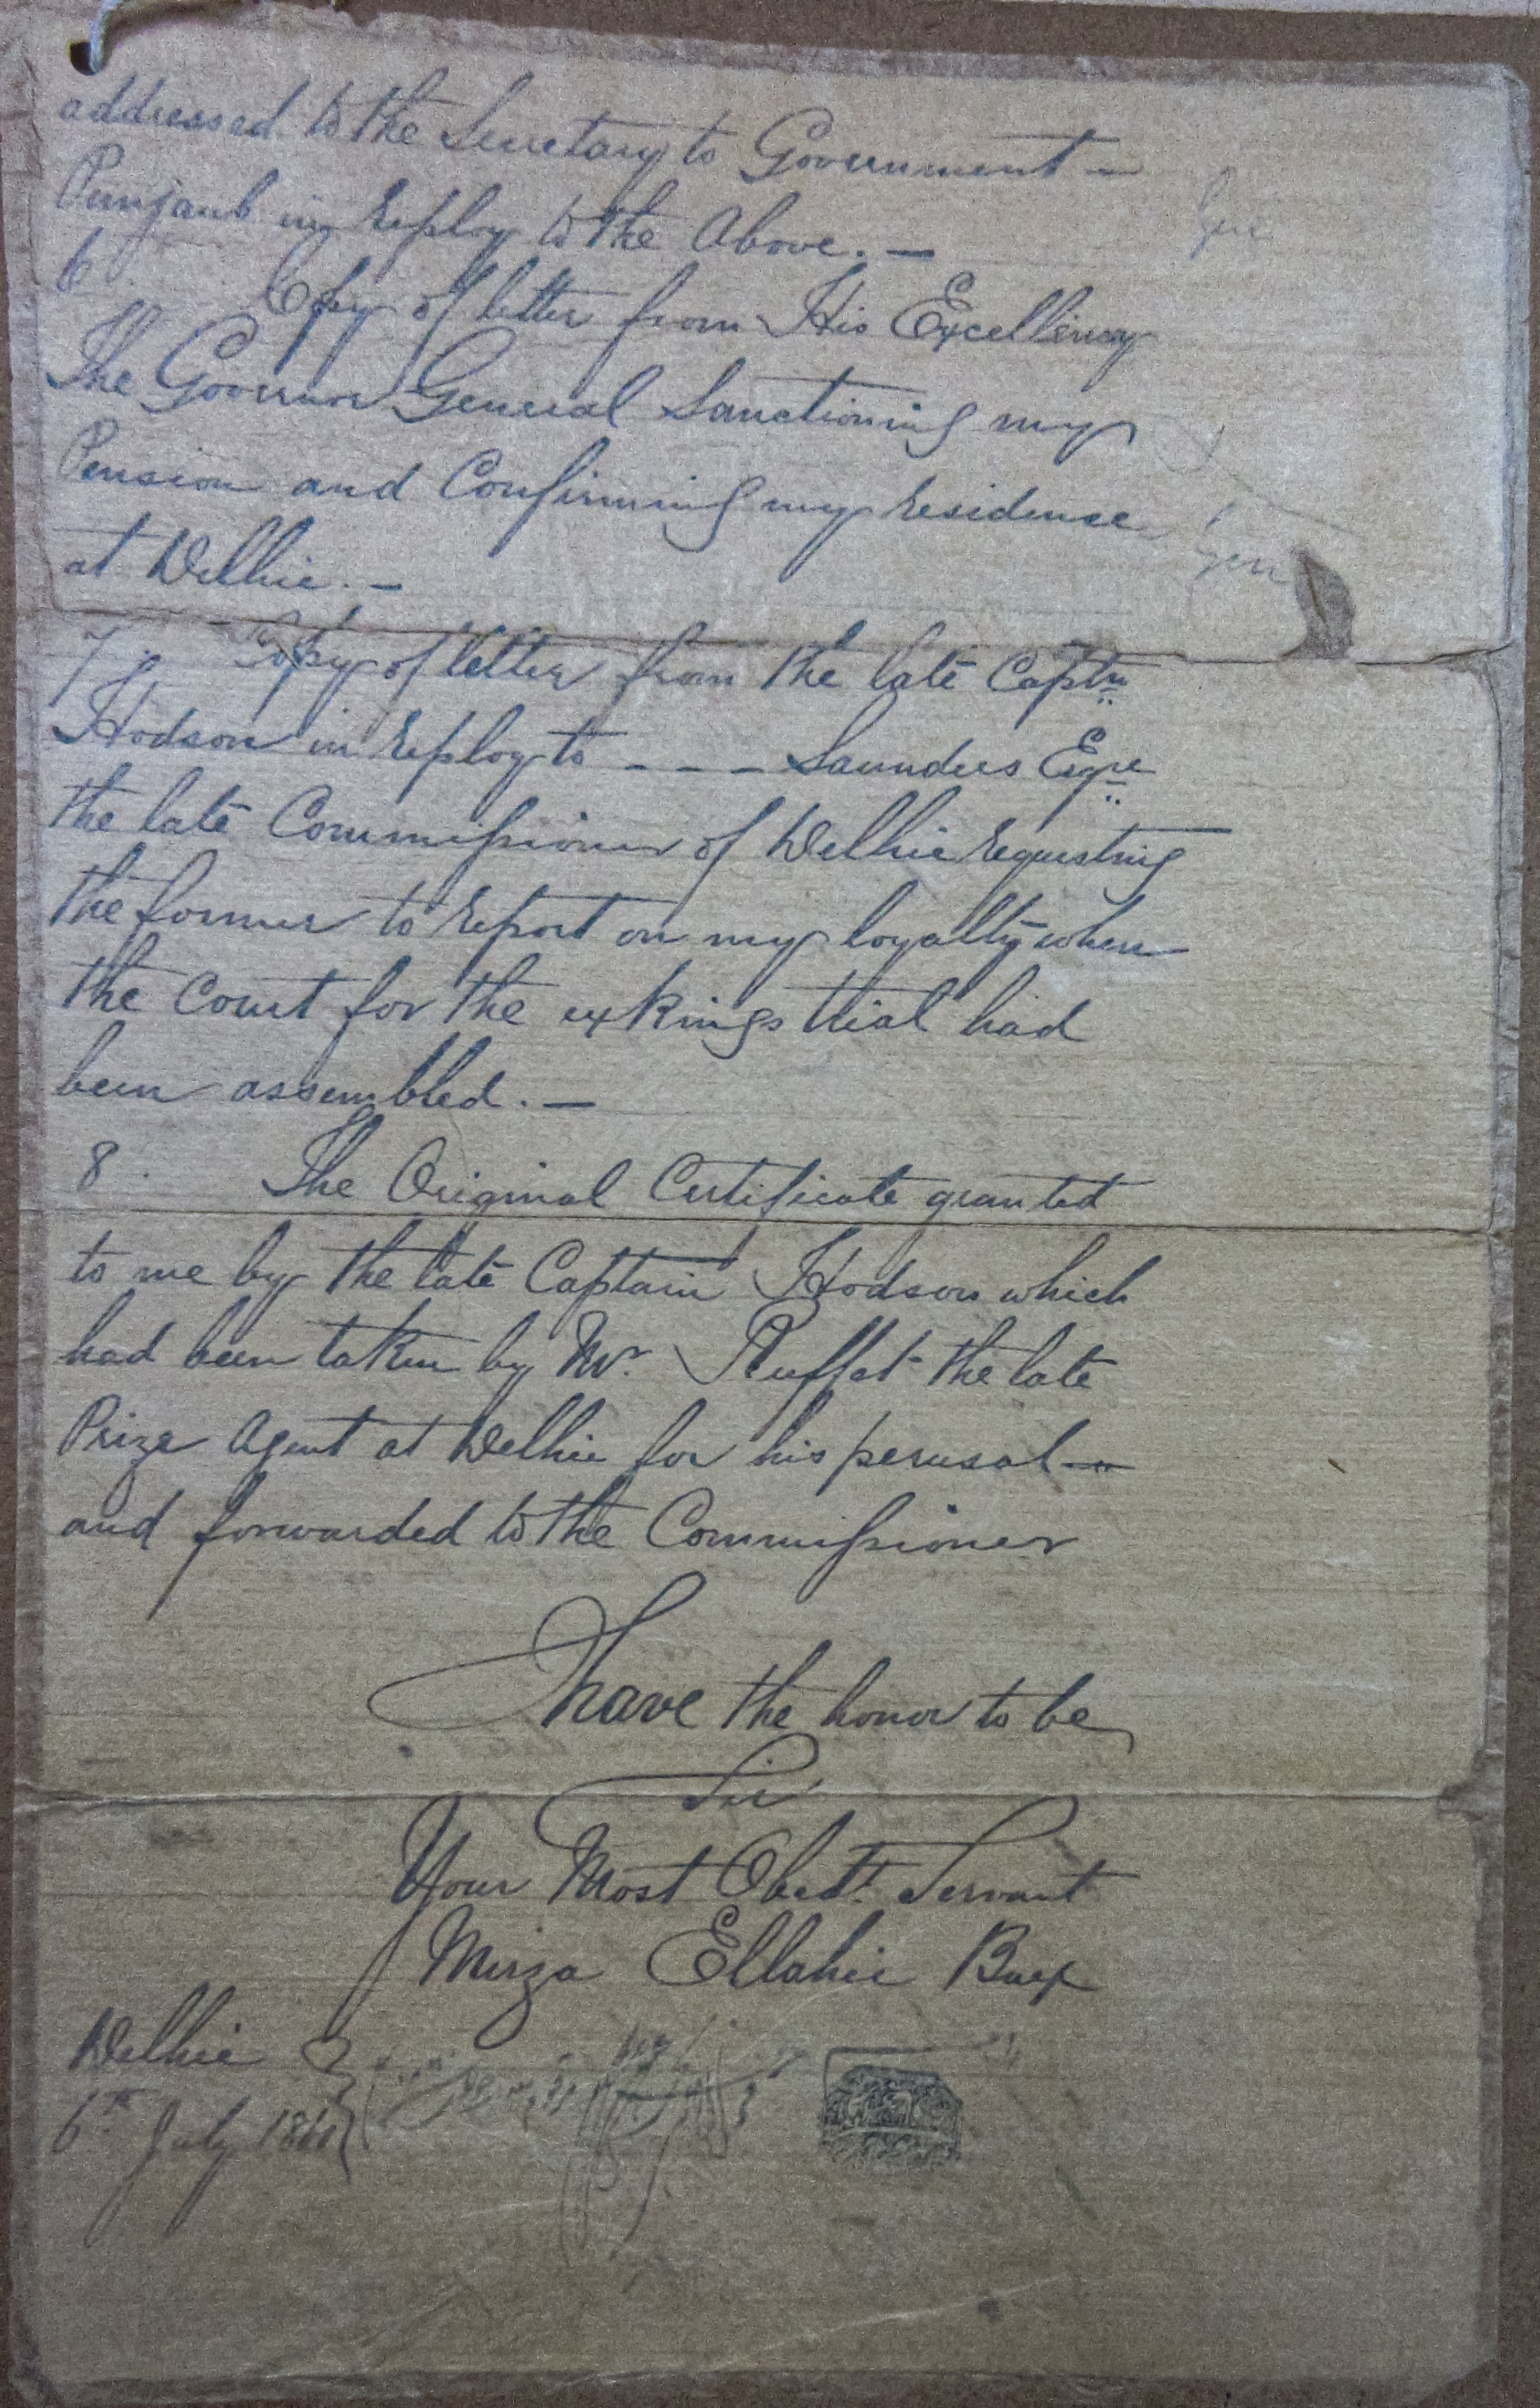 addressed to the Secretary to Government —
Punjaub in reply to the Above. —
6 Copy of letter from His Excellency
The Governor General Sanctioning my
Pension and Confirming my residence
at Delhie. —
7. Copy of letter from the late Captn
Hodson in reply to - - - Saunders Eqre
the late Commissioner of Delhie requesting
the former to report on my loyalty when
the Court for the ex Kings trial had
been assembled. —
8. The Original Certificate granted
to me by the late Captain Hodson which
had been taken by Mr. Ruffet the late
Prize Agent at Delhie for his perusal —
and forwarded to the Commissioner
I have the honor to be
Sir
Your Most Obedt. Servant
Mirza Ellahie Bux
Delhie
6th July